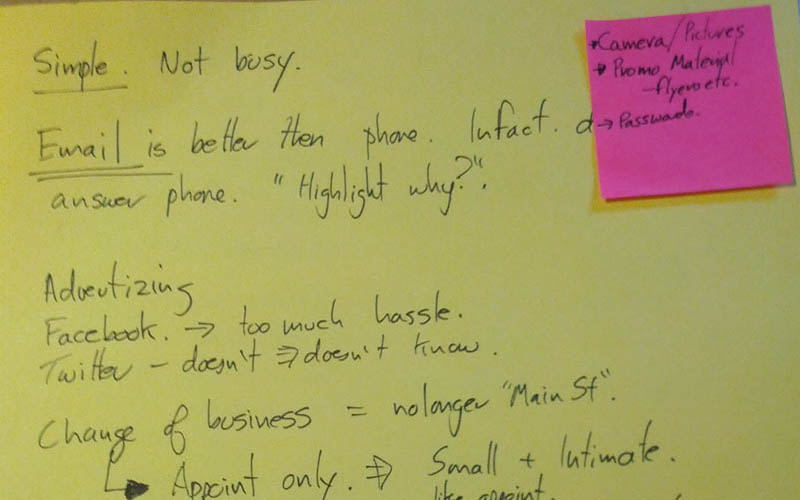 Simple. Not busy.
Email is better then phone. Infact. d
answer phone. "Highlight why?".
Advertizing
Facebook. → too much hassle.
Twitter – doesn't ⇒ doesn't know.
Change of business = no longer "Main St".
↳ Appoint only. ⇒ Small + Intimate.
like appoint.
→ Camera/Pictures
→ Promo Material
– flyers etc.
→ Passwords.